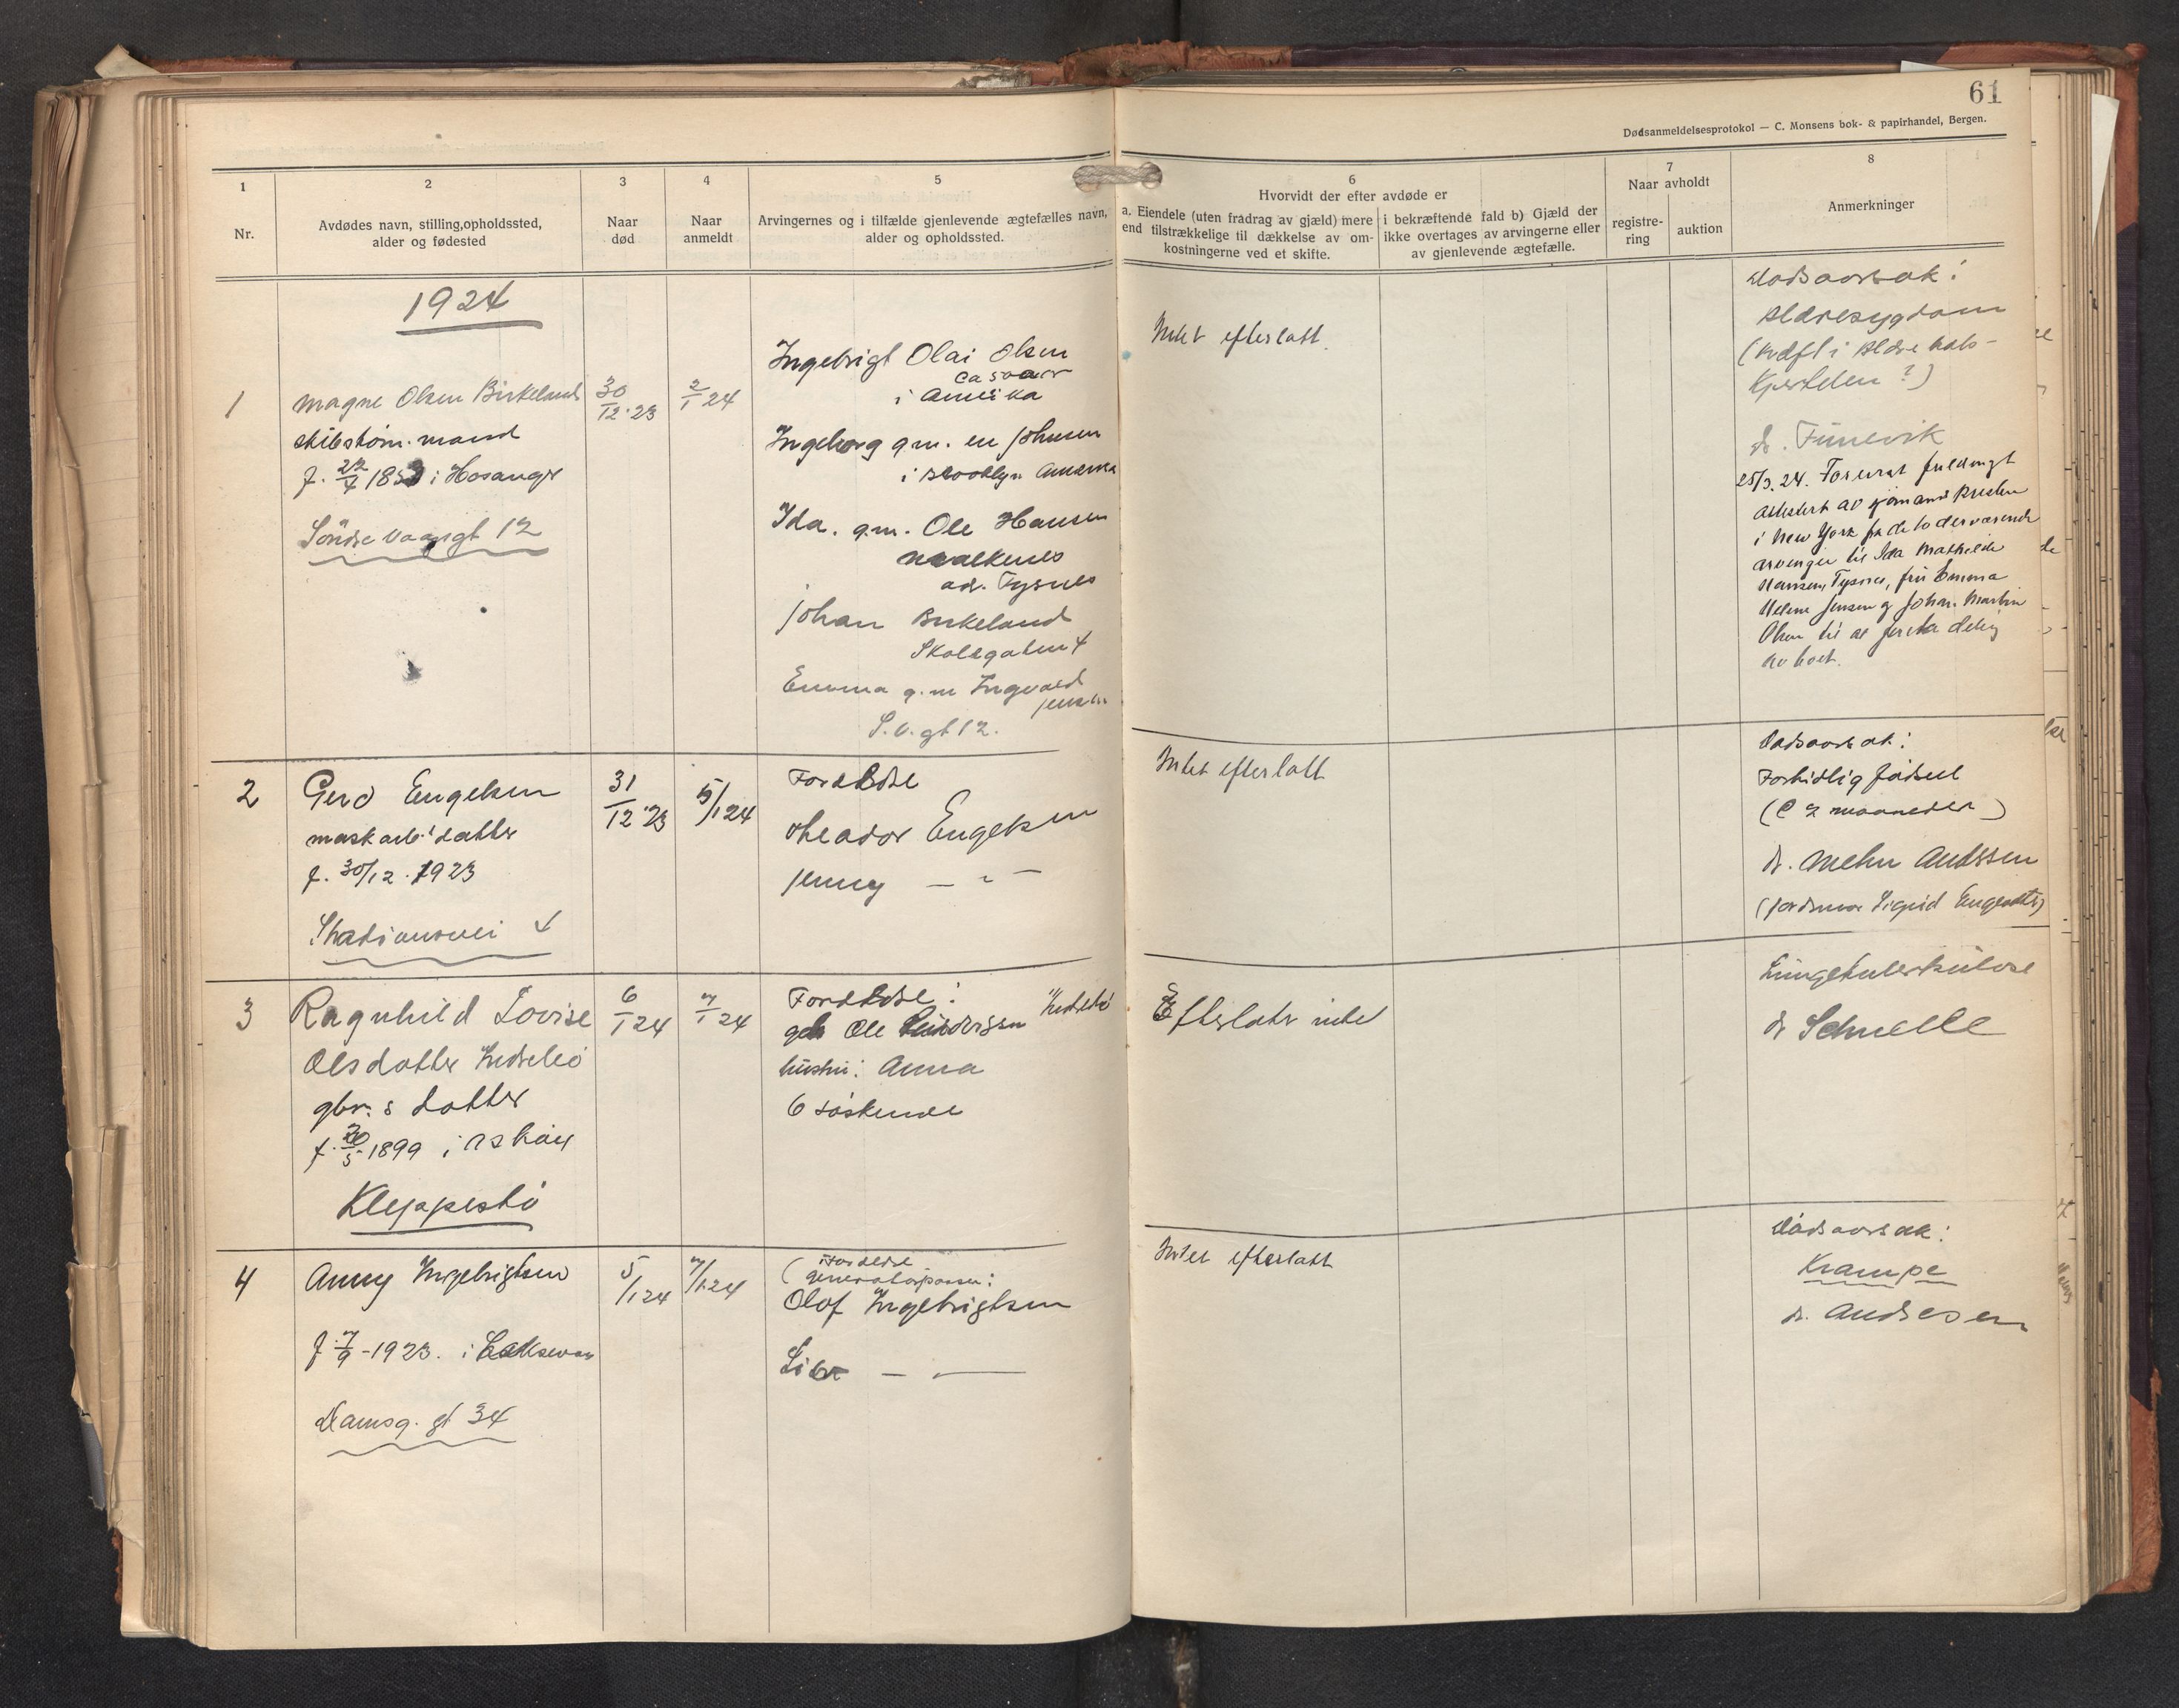 61
Dødsanmeldelsesprotokol — C. Monsens bok- & papirhandel, Bergen.
1
Nr.
2
Avdødes navn, stilling,opholdssted,
alder og fødested
3
Naar
død
4
Naar
anmeldt
5
Arvingernes og i tilfælde gjenlevende ægtefælles navn,
alder og opholdssted.
6
Hvorvidt der efter avdøde er
a. Eiendele (uten fradrag av gjæld) mere
end tilstrækkelige til dækkelse av om-
kostningerne ved et skifte.
i bekræftende fald b) Gjæld der
ikke overtages av arvingerne eller
av gjenlevende ægtefælle.
7
Naar avholdt
registre-
ring
auktion
8
Anmerkninger
1924
1
Magne Olsen Birkeland
skibstøm.mand
f. 22/4 1853 i Hosanger
Søndre Vaagsgt 12
30/12.23
2/1 24
Ingebrigt Olai Olsen
ca 50 aar
i Amerika
Ingeborg g.m. en Johnsen
i Brooklyn Amerika
Ida. g.m. Ole Hansen
adr. Tysnes
Johan Birkeland
Skolegaten 4
Emma g.m Ingvald
Jensen
S.V.gt 12.
Intet efterlatt.
Dødsaarsak:
Blæresygdom
(kræft i blærehals-
kjertelen?)
dr. Finnevik
25/3.24. Forevist fuldmagt
attestert av sjømandspresten
i New York fra de to derværende
arvinger til Ida Mathilde
Hansen, Tysnes, fru Emma
Helene Jensen og Johan Martin
Olsen til at foreta deling
av boet.
2
Gerd Engelsen
maskarb. datter
f. 30/12.1923
Stadionsvei 4
31/12.23
5/1 24
Forældre
Theodor Engelsen
Jenny — " —
Intet efterlatt
Dødsaarsak:
Fortidlig fødsel
(C 7 maaneder)
dr. Mehn Andersen
(jordmor Sigrid
3
Ragnhild Lovise
Olsdatter Indrebø
gbr.s datter
f. 20/5-1899 i Askøy
Kleppestø
6/1 24
7/1 24
Forældre:
gbr Ole Indrebø
hustru: Anna
6 søskende
Efterlater intet
Lungetuberkulose
dr Schnelle
4
Anny Ingebrigtsen
f 7/9-1923. i Laksevaag
Damsg. gt 34
5/1 24
7/1 24
(Forældre
generatorpasser:
Olof Ingebrigtsen
— —
Intet efterlatt
Dødsaarsak:
Krampe
dr. Andresen